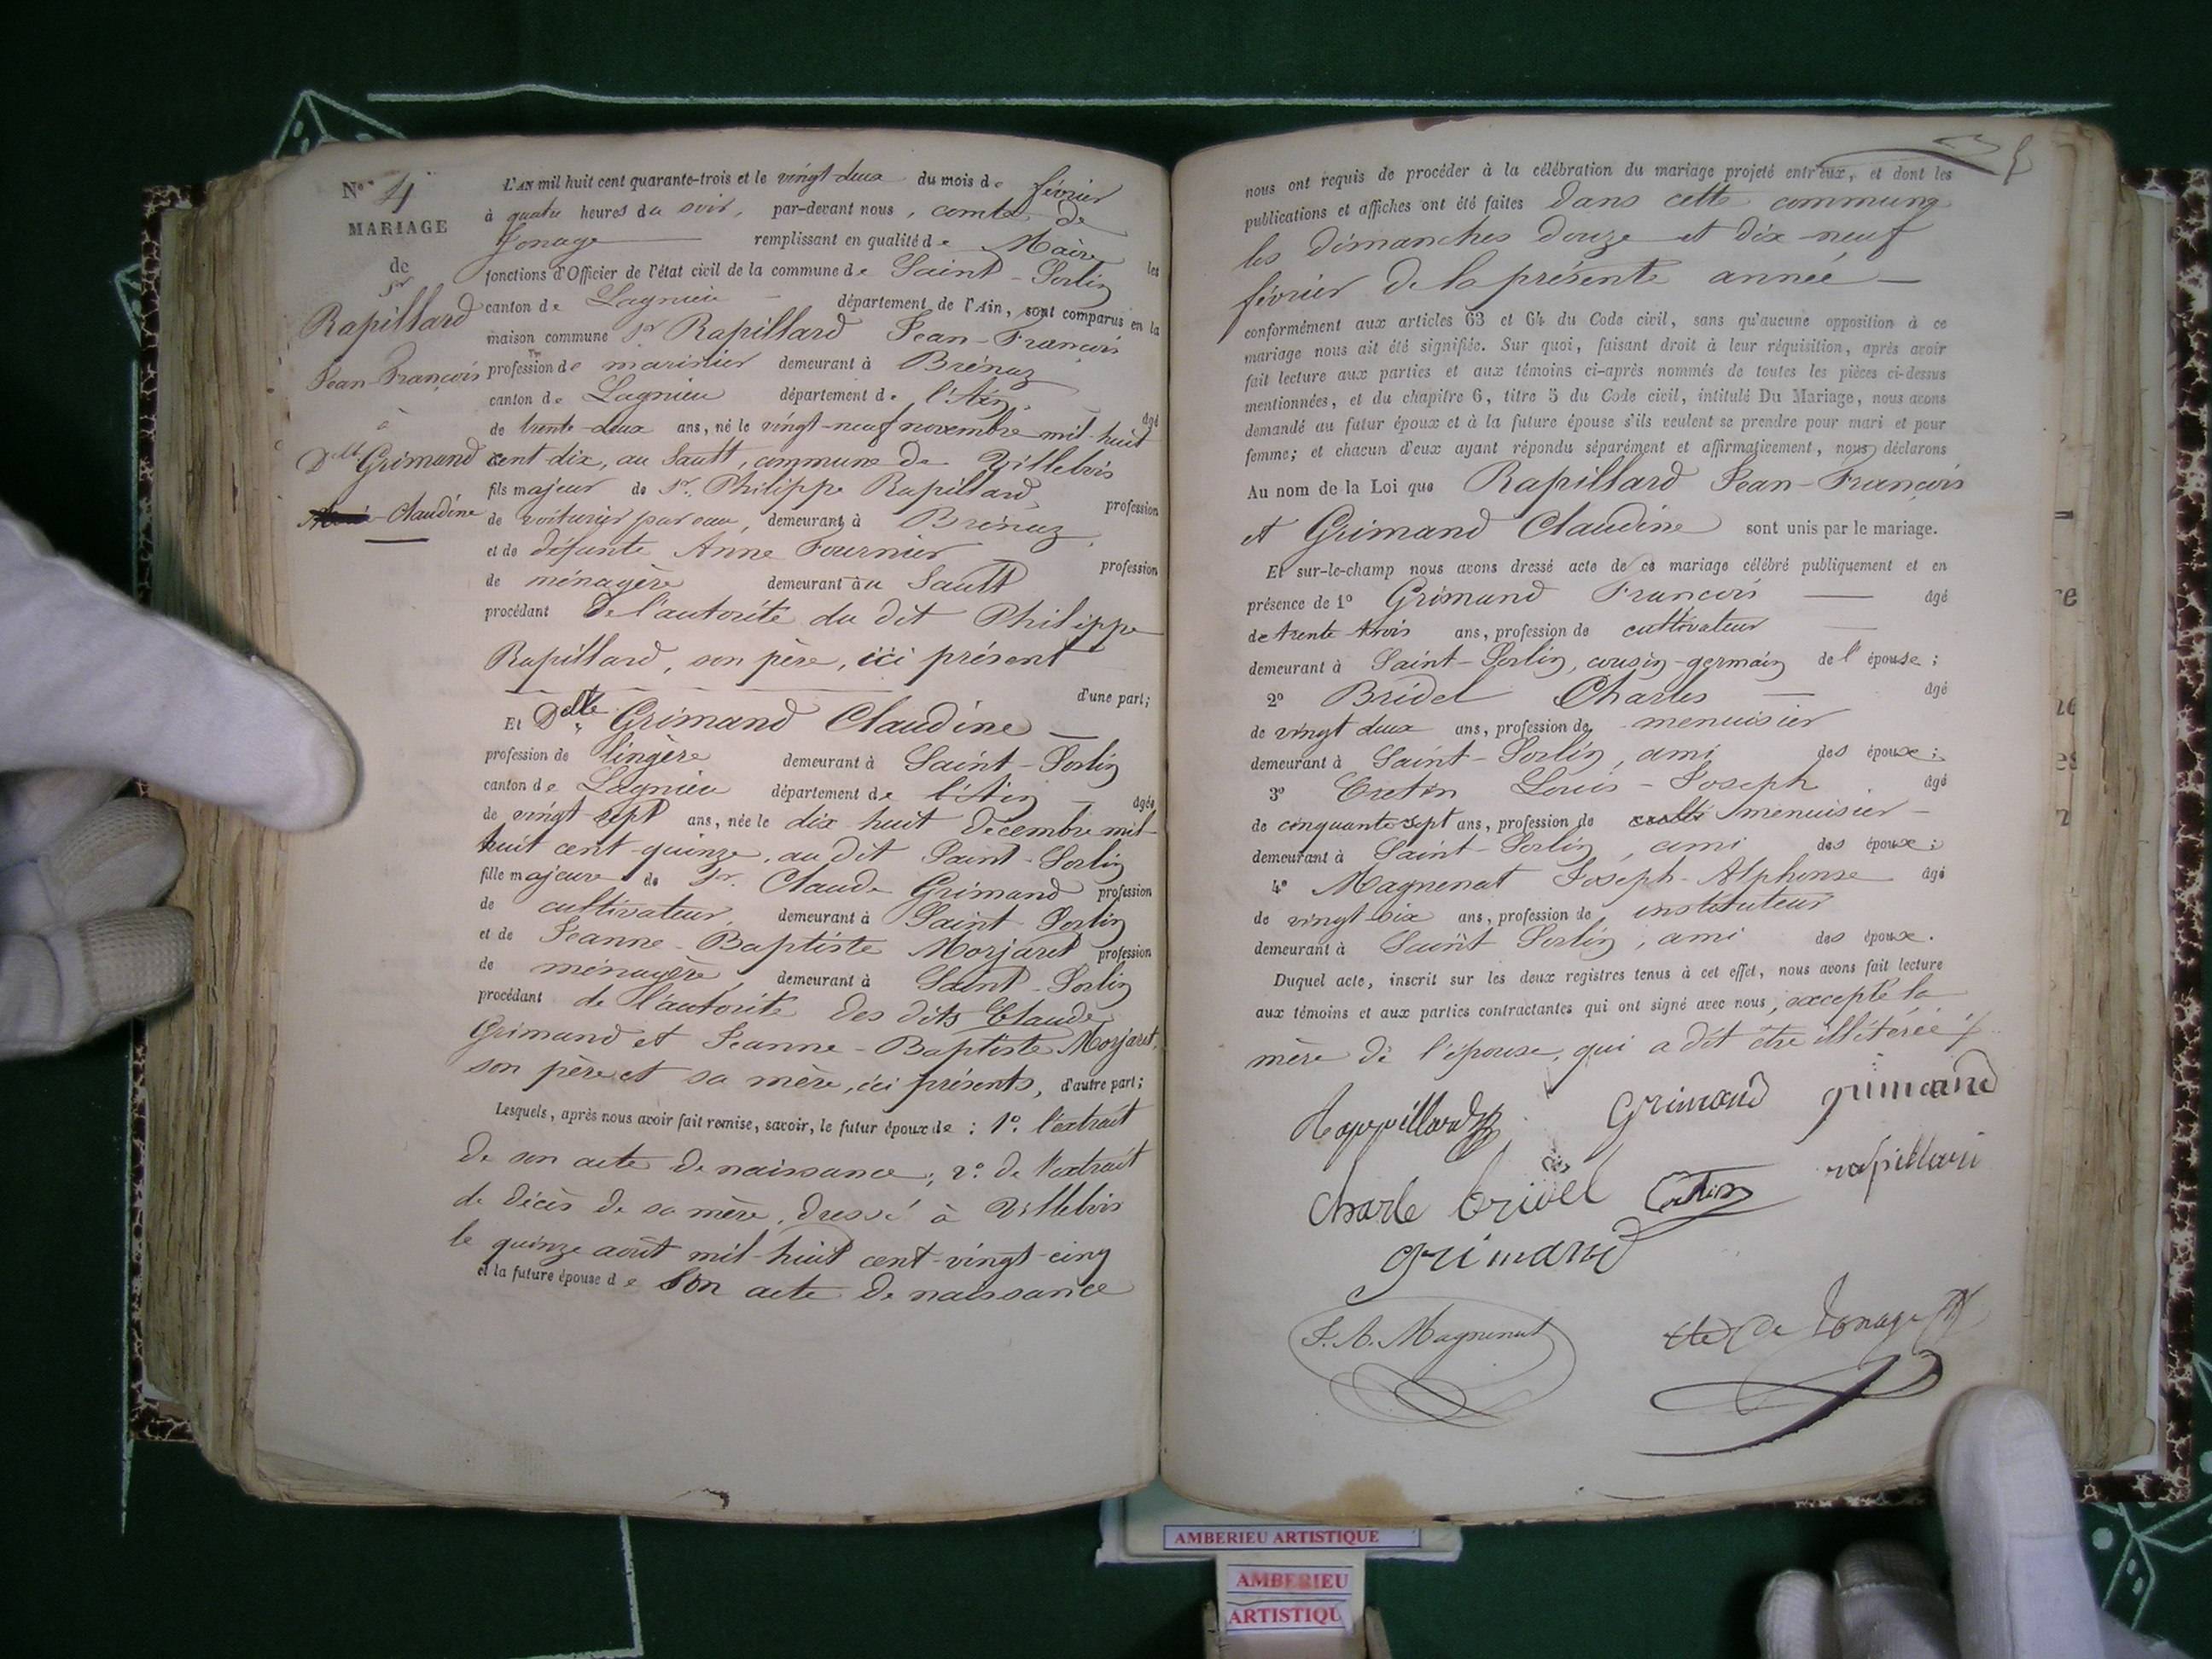 N° 4
MARIAGE
de
Sr
Rapillard
Jean-François
à
Dlle Grimand
Claudine
L'AN mil huit cent quarante-trois et le vingt-deux du mois de février
à quatre heures du soir, par-devant nous, comte de
Jonage remplissant en qualité de Maire les
fonctions d'Officier de l'état civil de la commune de Saint-Sorlin
canton de Lagnieu département de l'Ain, sont comparus en la
maison commune Sr Rapillard Jean-François
profession de marinier demeurant à Brénaz
canton de Lagnieu département de l'Ain, âgé
de trente-deux ans, né le vingt-neuf novembre mil-huit
cent-dix, au Sault, commune de Villebois
fils majeur de Sr. Philippe Rapillard, profession
de voiturier par eau, demeurant à Brénaz,
et de défunte Anne Fournier profession
de ménagère demeurant au Sault
procédant de l'autorité du dit Philippe
Rapillard, son père, ici présent
d'une part;
Et Delle Grimand Claudine
profession de lingère demeurant à Saint-Sorlin
canton de Lagnieu département de l'Ain âgée
de vingt-sept ans, née le dix-huit décembre mil-
huit cent-quinze, au dit Saint-Sorlin
fille majeure de Sr. Claude Grimand profession
de cultivateur, demeurant à Saint-Sorlin
et de Jeanne-Baptiste Morjaret profession
de ménagère, demeurant à Saint-Sorlin
procédant de l'autorité des dits Claude
Grimand et Jeanne-Baptiste Morjaret,
son père et sa mère, ici présents, d'autre part;
Lesquels, après nous avoir fait remise, savoir, le futur époux de : 1°. l'extrait
de son acte de naissance; 2°. de l'extrait
de décès de sa mère, dressé à Villebois
le quinze août mil-huit cent-vingt-cinq
et la future épouse de son acte de naissance
nous ont requis de procéder à la célébration du mariage projeté entr'eux, et dont les
publications et affiches ont été faites dans cette commune
les dimanches douze et dix-neuf
février de la présente année
conformément aux articles 63 et 64 du Code civil, sans qu'aucune opposition à ce
mariage nous ait été signifiée. Sur quoi, faisant droit à leur réquisition, après avoir
fait lecture aux parties et aux témoins ci-après nommés de toutes les pièces ci-dessus
mentionnées, et du chapitre 6, titre 5 du Code civil, intitulé Du Mariage, nous avons
demandé au futur époux et à la future épouse s'ils veulent se prendre pour mari et pour
femme; et chacun d'eux ayant répondu séparément et affirmativement, nous déclarons
Au nom de la Loi que Rapillard Jean-François
et Grimand Claudine sont unis par le mariage.
Et sur-le-champ nous avons dressé acte de ce mariage célébré publiquement et en
présence de 1° Grimand François âgé
de trente-trois ans, profession de cultivateur
demeurant à Saint-Sorlin, cousin-germain de l'épouse;
2° Bridel Charles âgé
de vingt-deux ans, profession de menuisier
demeurant à Saint-Sorlin, ami des époux;
3° Louis-Joseph âgé
de cinquante-sept ans, profession de menuisier
demeurant à Saint-Sorlin, ami des époux;
4° Magnenat Joseph-Alphonse âgé
de vingt-six ans, profession de instituteur
demeurant à Saint Sorlin, ami des époux.
Duquel acte, inscrit sur les deux registres tenus à cet effet, nous avons fait lecture
aux témoins et aux parties contractantes qui ont signé avec nous, excepté la
mère de l'épouse, qui a dit être illitérée
Grimand grimand
rapillard
Charle
grimand
J. A. Magnenat
de Jonage
AMBERIEU ARTISTIQUE
AMBERIEU
ARTISTIQU